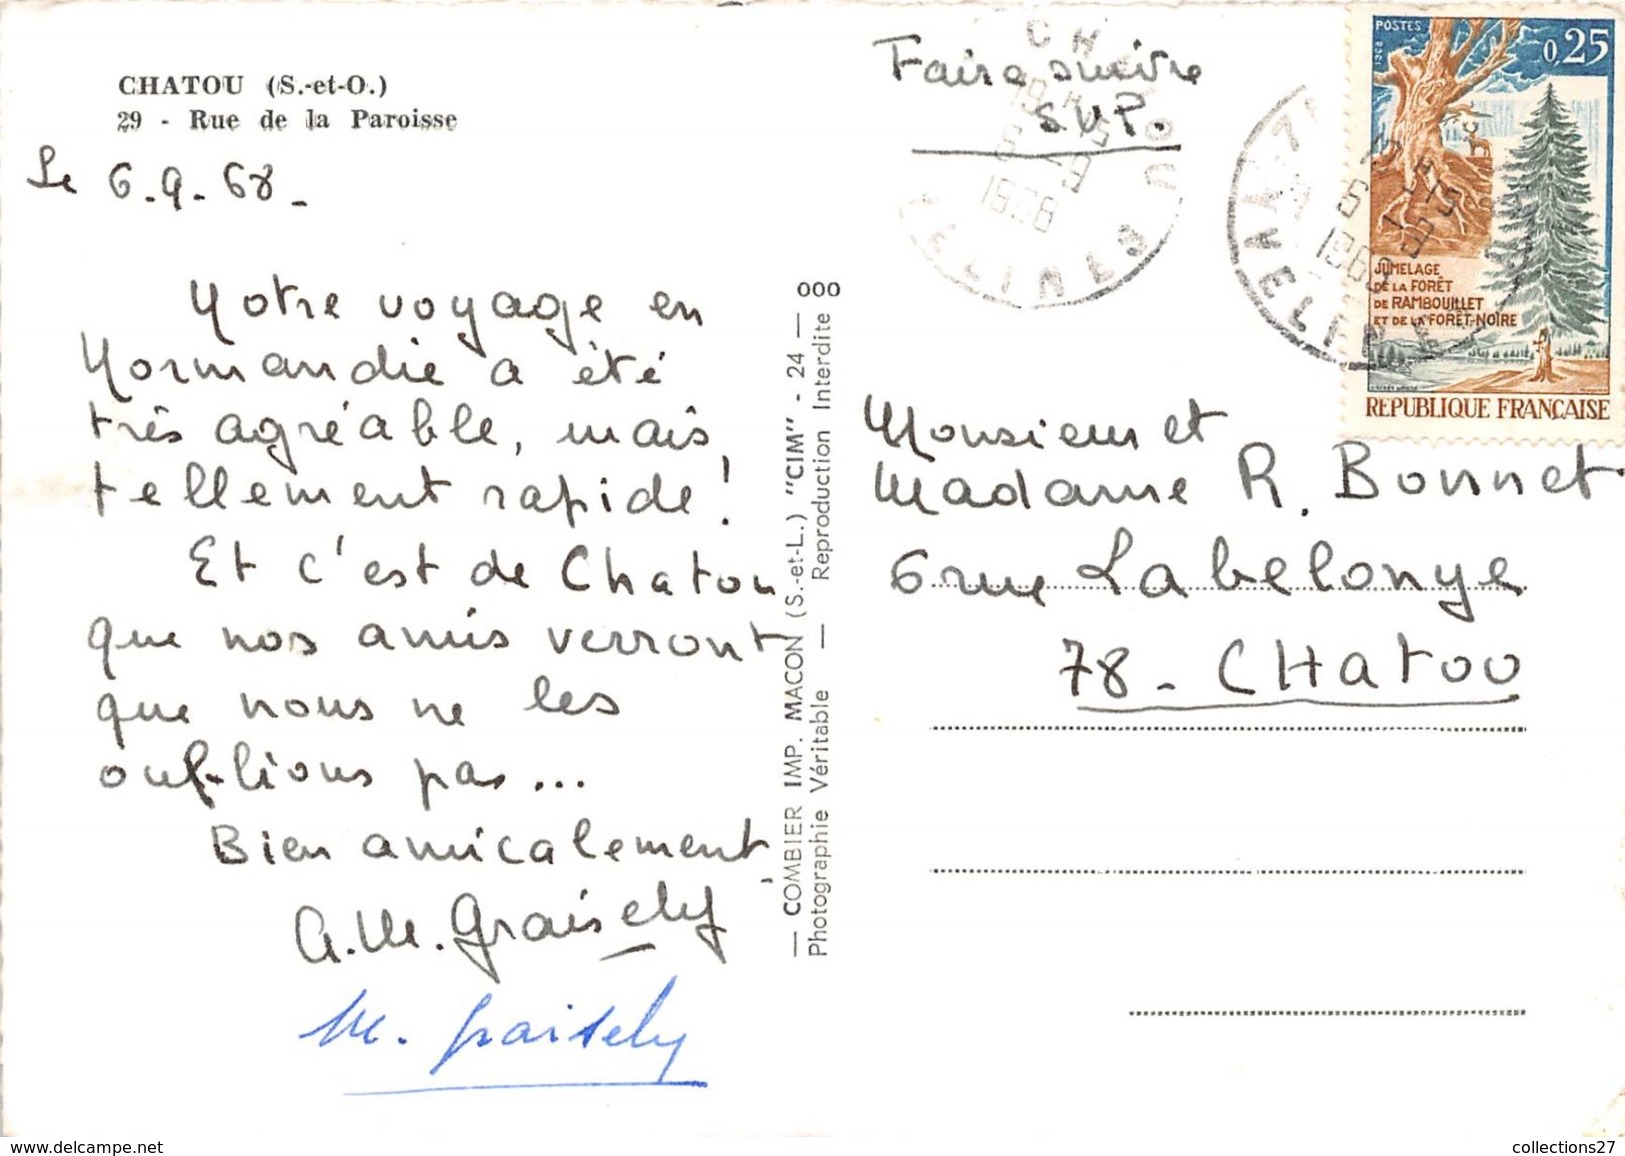 CHATOU (S.-et-O.)
29 - Rue de la Paroisse
Le 6.9.68_
Notre voyage en
Normandie a été
très agréable, mais,
tellement rapide !
Et c'est de Chatou
que nos amis verront
que nous ne les
oublions pas...
Bien amicalement,
M. Graisely
000
— COMBIER IMP. MACON (S.-et-L.) "CIM" - 24 —
Photographie Véritable — Reproduction Interdite
Faire suivre
S.V.P.
CHATOU
YVELINES
19H15
6-9
1968
POSTES
1968
0,25
JUMELAGE
DE LA FORÊT
DE RAMBOUILLET
ET DE LA FORÊT-NOIRE
REPUBLIQUE FRANÇAISE
Monsieur et
Madame R. Bonnet
6 rue Labelonye
78 - CHatou
collections27